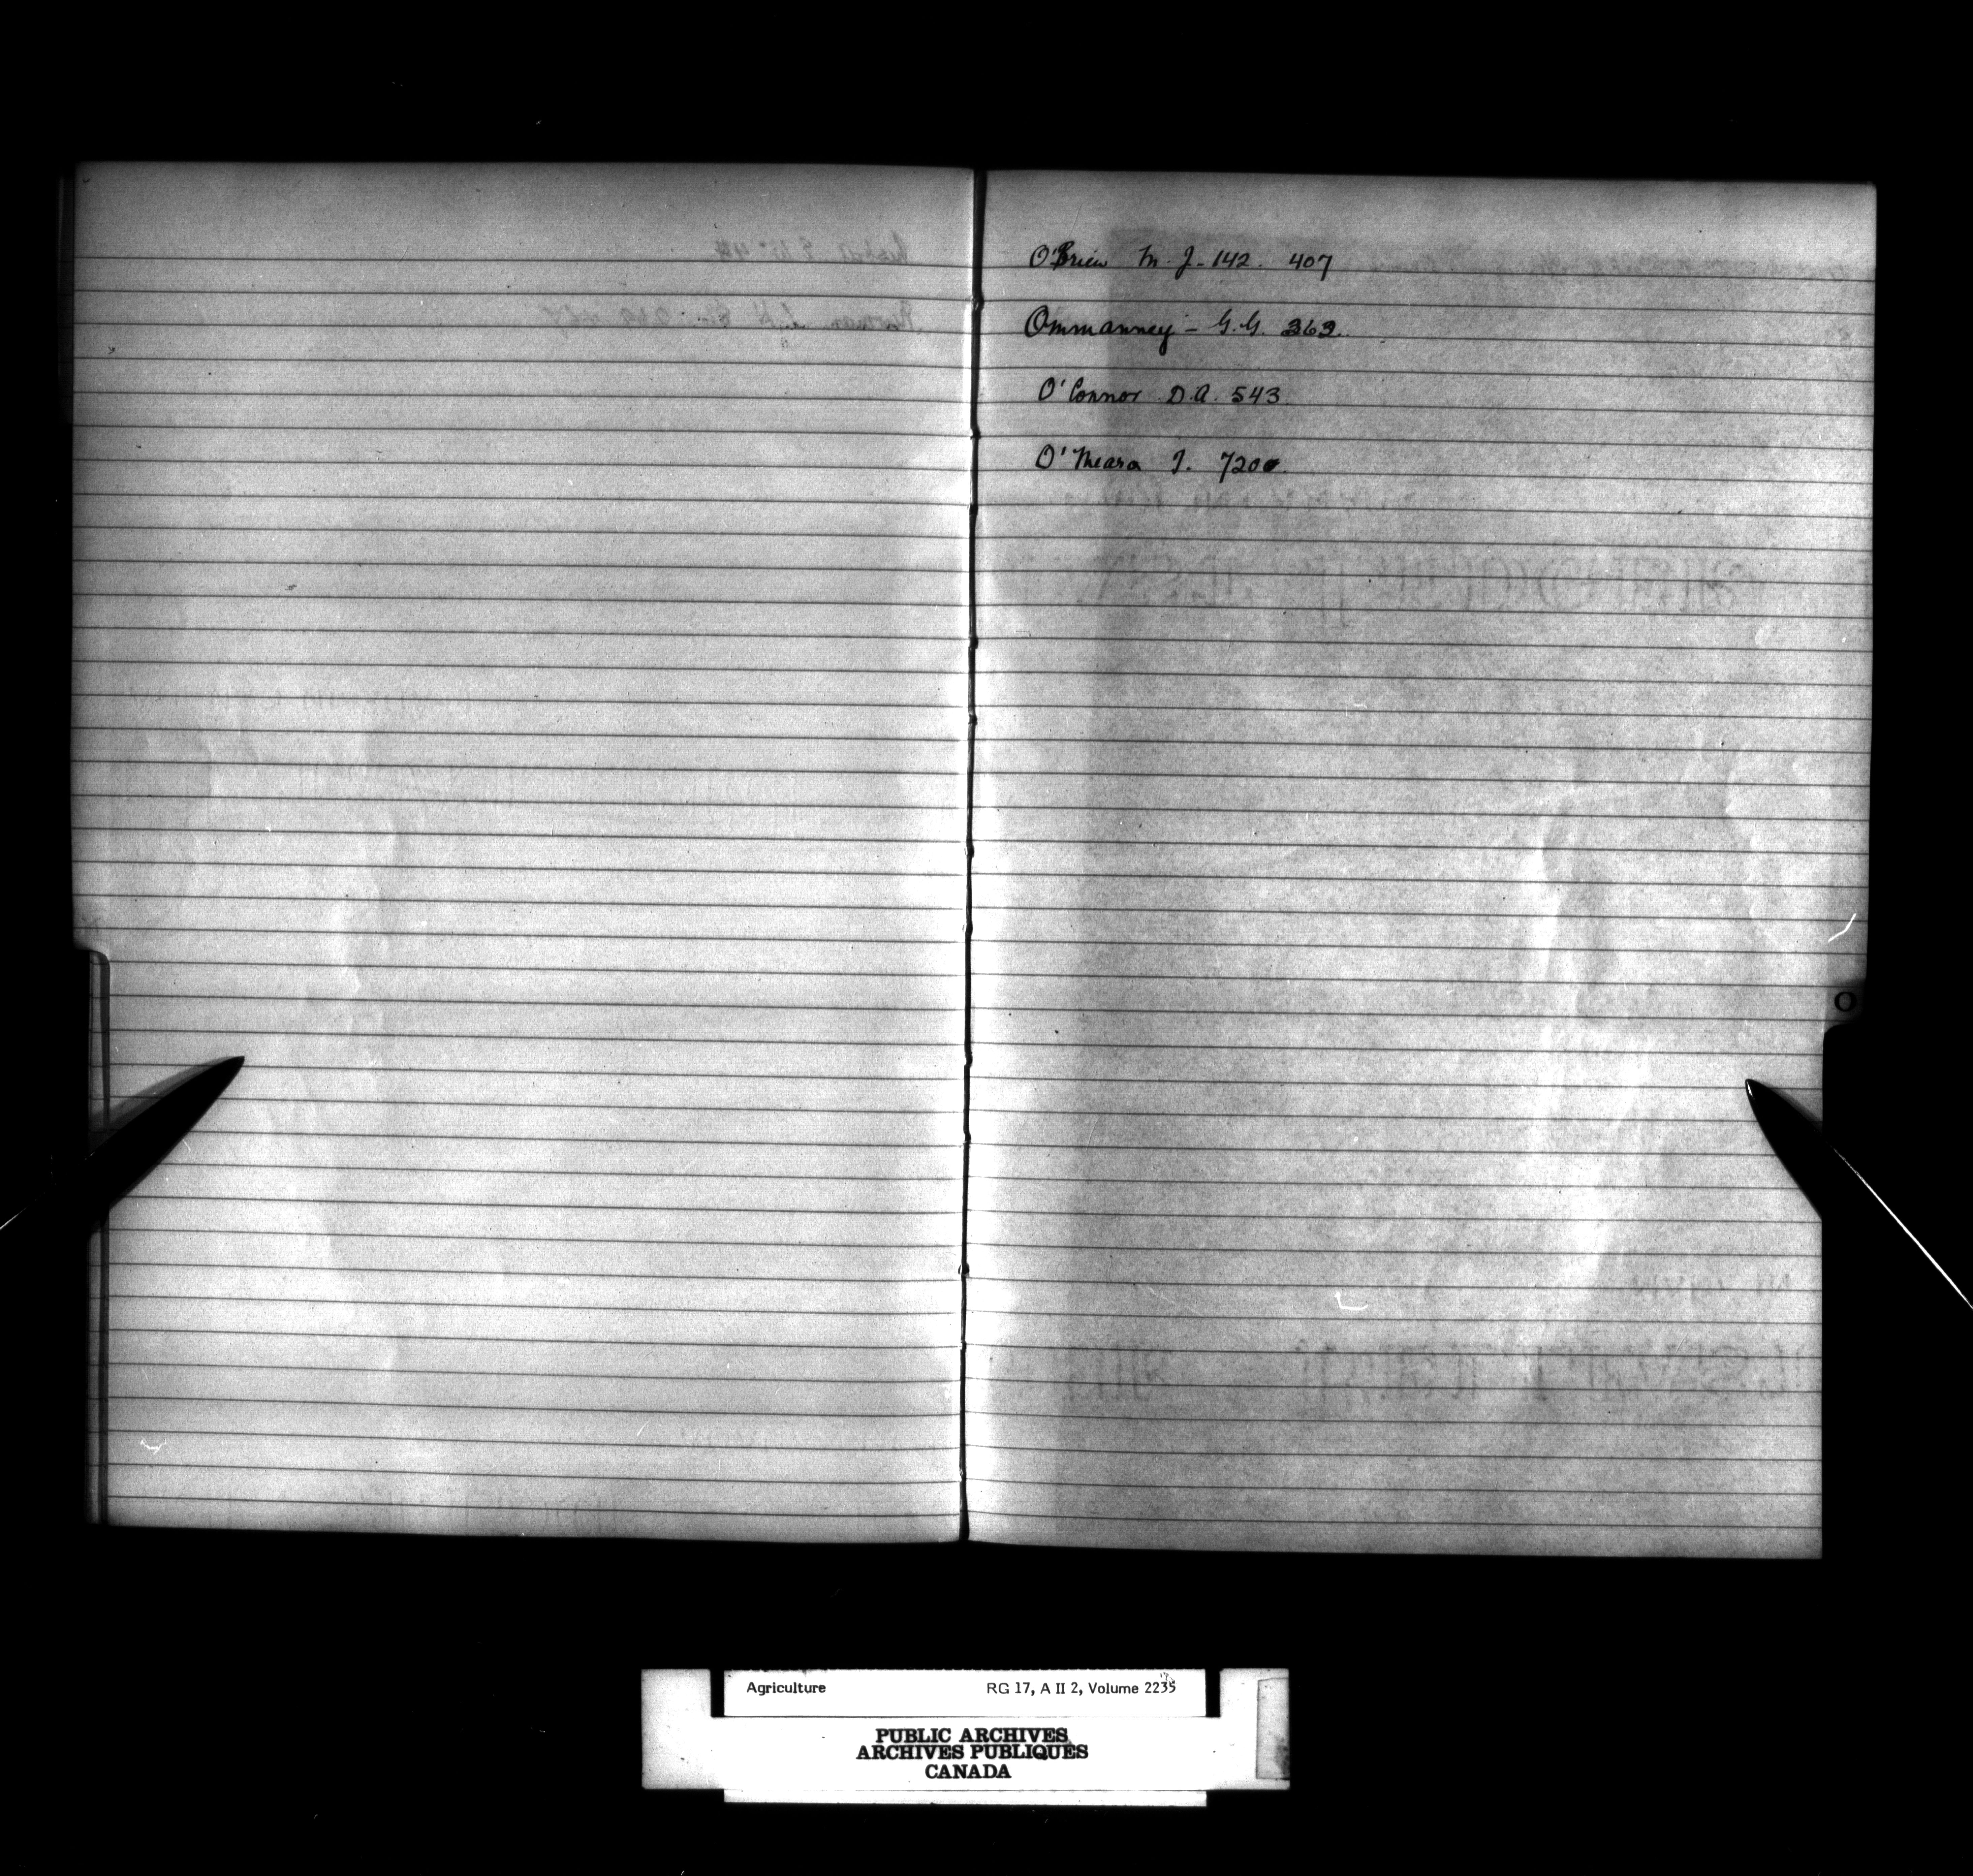 O'Brien M. J. - 142. 407
Ommanney - G.G. 363.
O'Connor D.A. 543
O'Meara J. 720
O
Agriculture RG 17, A II 2, Volume 2235
PUBLIC ARCHIVES
ARCHIVES PUBLIQUES
CANADA